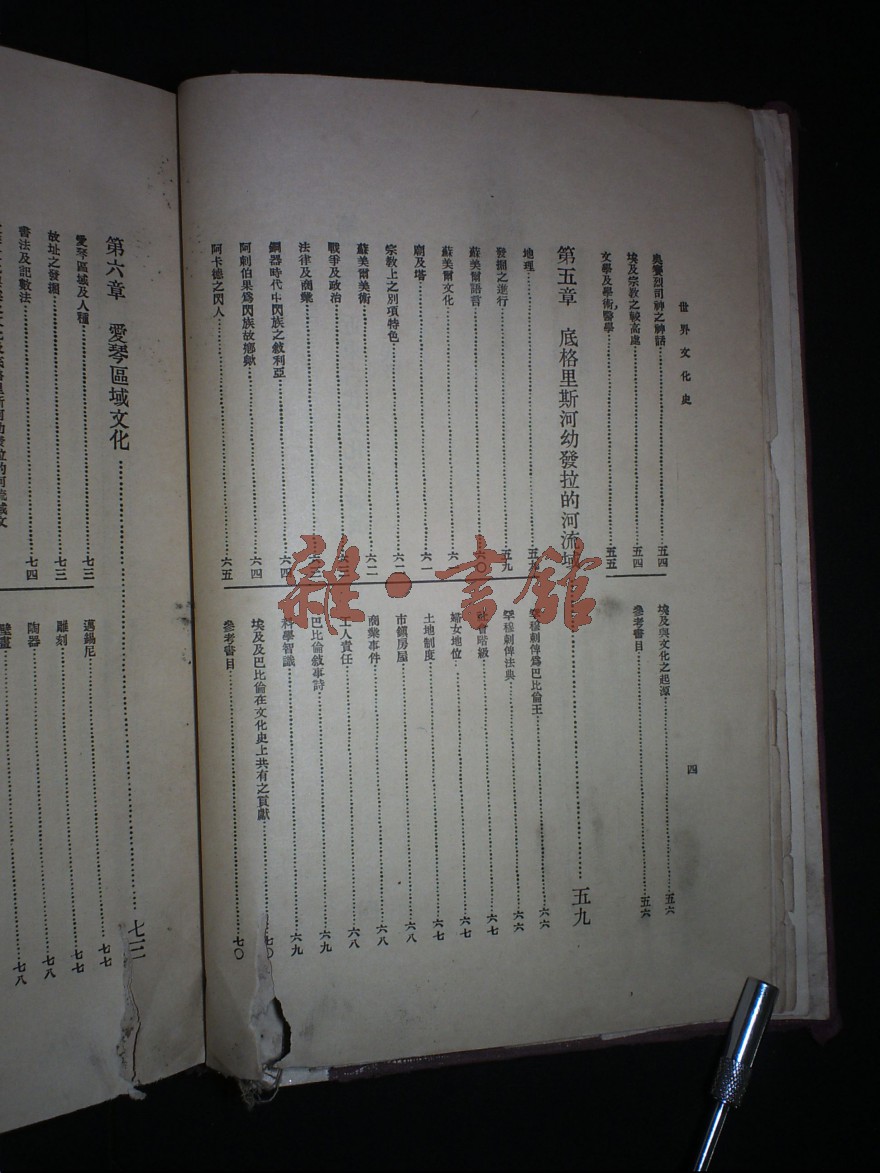 世界文化史
四
奧賽烈司神之神話……五四
埃及宗教之較高處……五四
文學及學術醫學……五五
埃及與文化之起源……五六
參考書目……五六
第五章　底格里斯河幼發拉的河流域……五九
地理……五九
發掘之進行……五九
蘇美爾語言……六〇
蘇美爾文化……六一
廟及塔……六一
宗教上之別項特色……六二
蘇美爾美術……六二
戰爭及政治……六三
法律及商業
銅器時代中閃族之敘利亞……六四
阿剌伯果爲閃族故鄉歟……六四
阿卡德之閃人……六五
罕穆剌俾爲巴比倫王……六六
罕穆剌俾法典……六六
社會階級……六七
婦女地位……六七
土地制度……六七
市鎮房屋……六八
商業事件……六八
工人責任……六八
巴比倫敘事詩……六九
科學智識……六九
埃及及巴比倫在文化史上共有之貢獻……七〇
參考書目……七〇
第六章　愛琴區域文化……七三
愛琴區域及人種……七三
故址之發掘……七三
書法及記數法……七四
邁錫尼……七七
雕刻……七七
陶器……七八
壁畫……七八
雜·書館